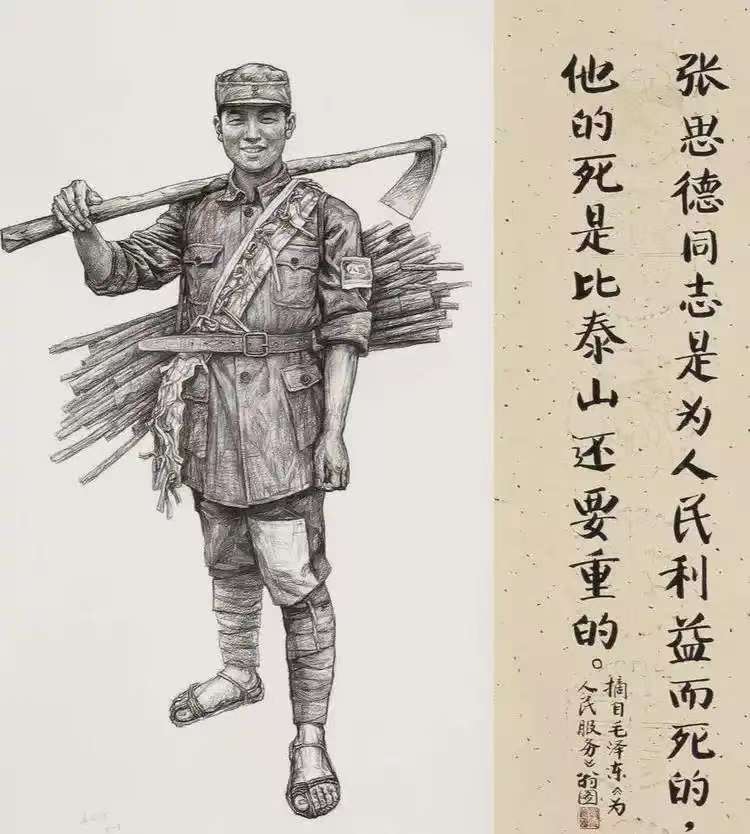 张思德同志是为人民利益而死的，
他的死是比泰山还要重的。
摘自毛泽东《为
人民服务》